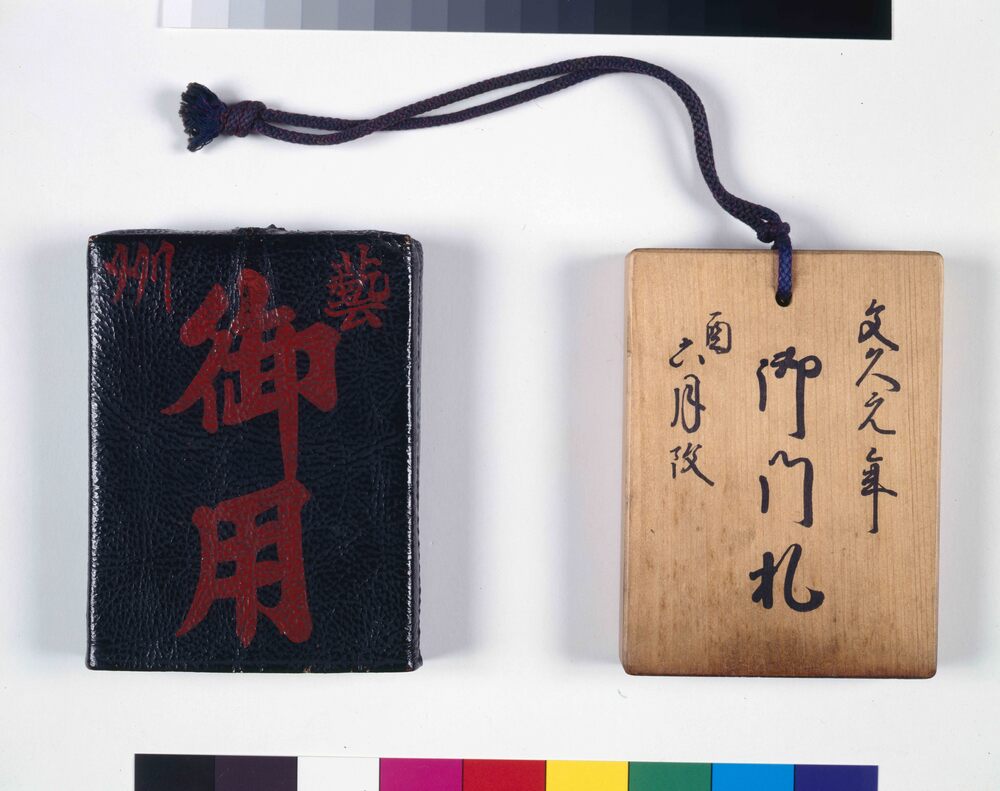 藝州
御用
文久元年
御門札
酉六月改